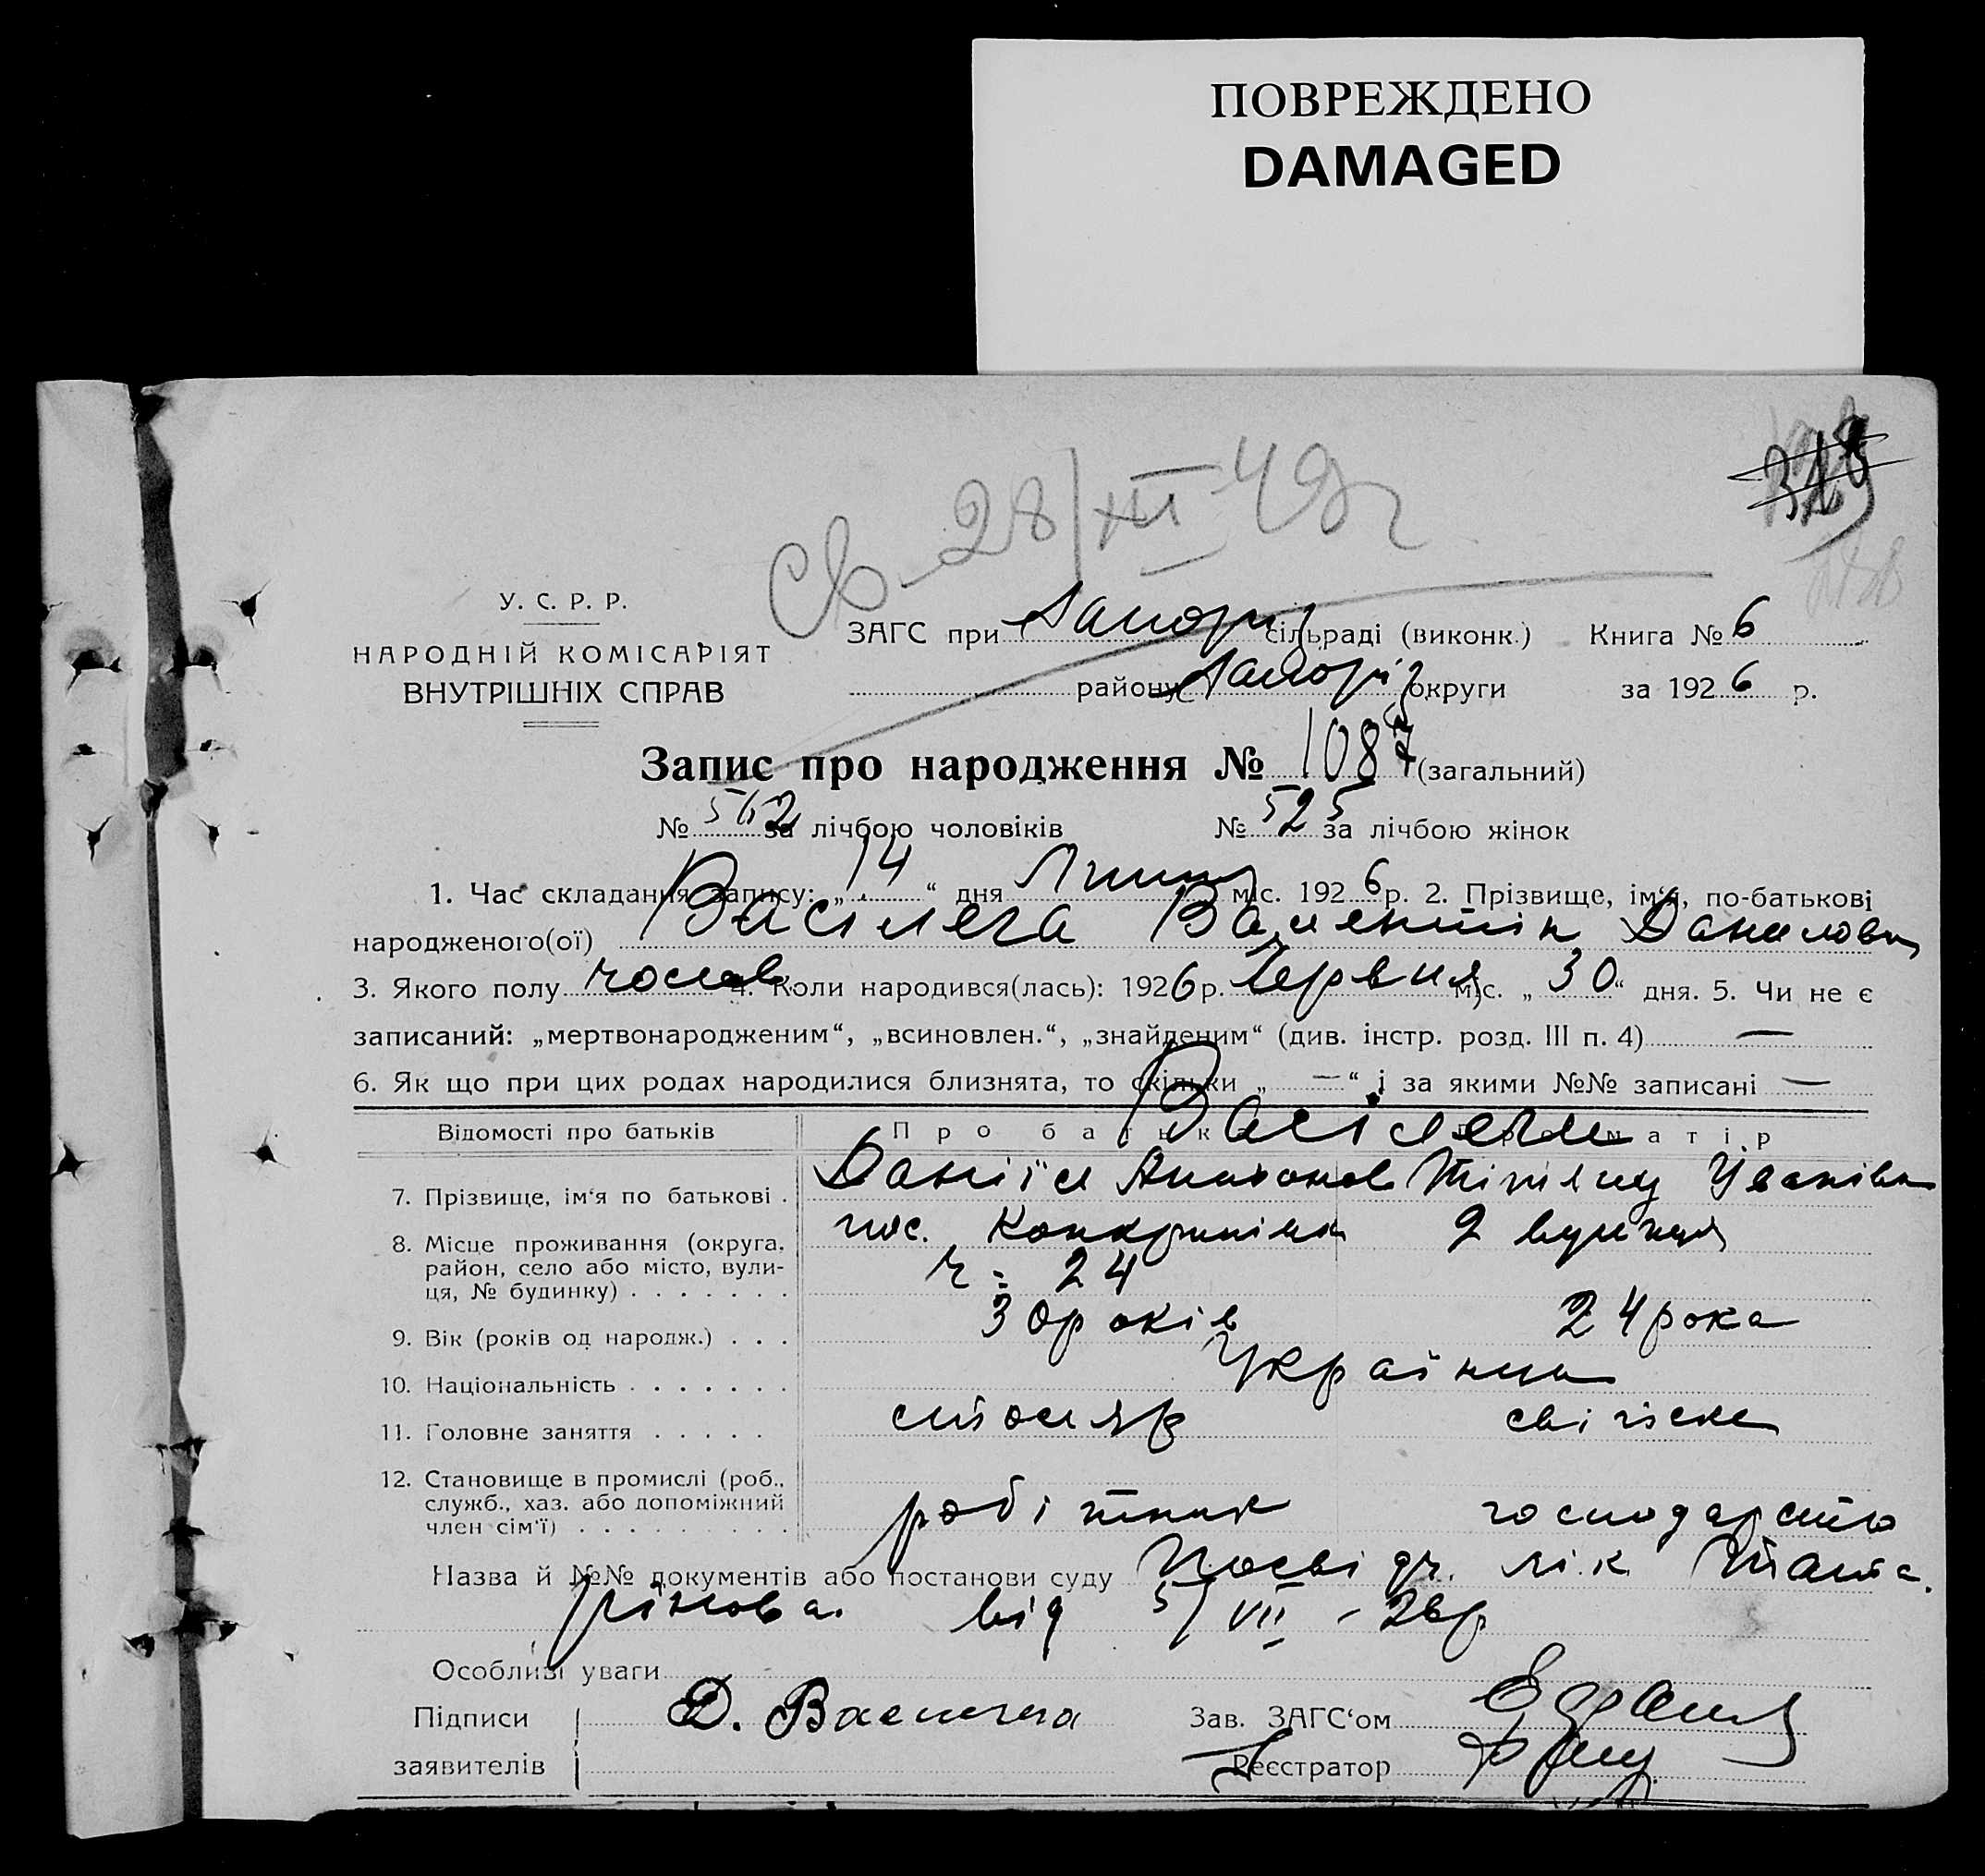 ПОВРЕЖДЕНО
DAMAGED
Св. 28/XII 49 г
У. С. Р. Р.
НАРОДНІЙ КОМІСАРІЯТ
ВНУТРІШНІХ СПРАВ
ЗАГС при Запоріз сільраді (виконк.) Книга № 6
району Запоріз округи за 1926 р.
Запис про народження № 1087 (загальний)
№ 562 за лічбою чоловіків № 525 за лічбою жінок
1. Час складання запису: „14“ дня Липня міс. 1926 р. 2. Прізвище, ім‘я, по-батькові
народженого(ої) Васілега Валентін Данилович
3. Якого полу чолов. 4. Коли народився(лась): 1926 р. Червня міс. „30“ дня. 5. Чи не є
записаний: „мертвонародженим“, „всиновлен.“, „знайденим“ (див. інстр. розд. III п. 4) —
6. Як що при цих родах народилися близнята, то скільки „ — “ і за якими №№ записані —
Відомості про батьків Про батька Про матір
Васілеги
7. Прізвище, ім‘я по батькові . Даніїл Антонов Іванівна
8. Місце проживання (округа, район, село або місто, вулиця, № будинку) . . . . . . . пос. 2 вулиця
ч. 24
9. Вік (років од народж.) . . . 30 років 24 рока
10. Національність . . . . . . . Українці
11. Головне заняття . . . . . столяр
12. Становище в промислі (роб., служб., хаз. або допоміжний член сім‘ї) . . . . . . . . . робітник господарство
Назва й №№ документів або постанови суду Посвідч. лік.
від 5/VII - 26 р
Особливі уваги
Підписи заявителів Д. Василега
Зав. ЗАГС‘ом
Реєстратор